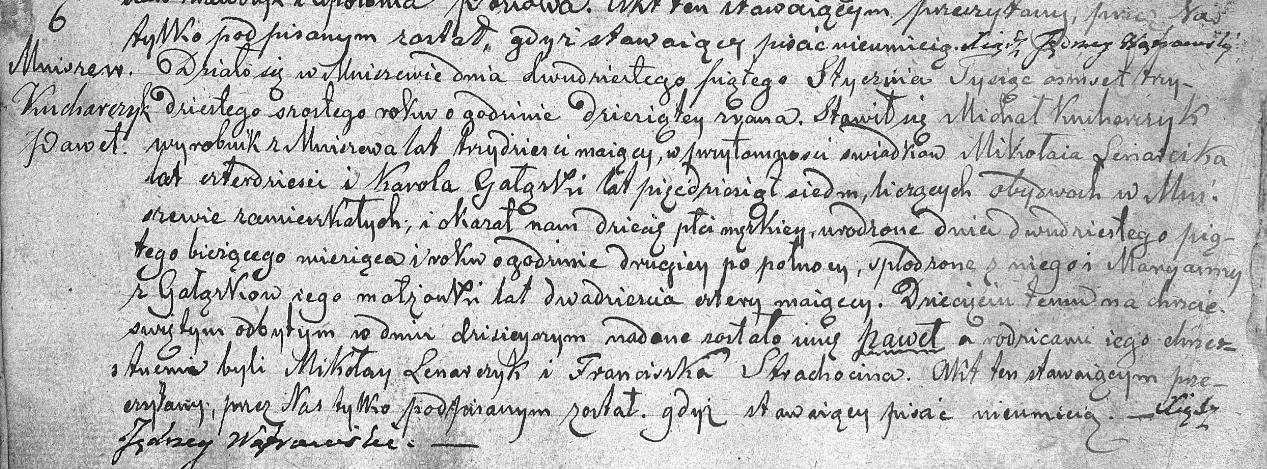 6
tylko podpisanym został, gdyż stawaiący pisać nieumieią. Xiądz Jędrzey Wągrowski.
Mniszew.
Kucharczyk
Paweł.
Działo się w Mniszewie dnia dwudziestego piątego Stycznia Tysiąc osmset trzy-
dziestego szostego roku o godzinie dziesiątey zrana. Stawił się Michał Kucharczyk
wyrobnik z Mniszewa lat trzydzieści maiący, w przytomności świadkow Mikołaia Lenarcika
lat czterdzieści i Karola Gałązki lat pięćdziesiąt siedm, liczących obydwoch w Mni-
szewie zamieszkałych, i okazał nam dziecię płci męzkiey, urodzone dnia dwudziestego pią-
tego bieżącego miesiąca i roku o godzinie drugiey po połnocy, spłodzone z niego i Maryanny
z Gałązkow iego małżonki lat dwadzieścia cztery maiącey. Dziecięciu temu na chrzcie
świętym odbytym w dniu dzisieyszym nadane zostało imię Paweł a rodzicami iego chrzes-
tnemi byli Mikołay Lenarczyk i Franciszka Strachocina. Akt ten stawaiącym prze-
czytany, przez Nas tylko podpisanym został. gdyż stawaiący pisać nieumieią. — Xiądz
Jędrzey Wągrowski. —